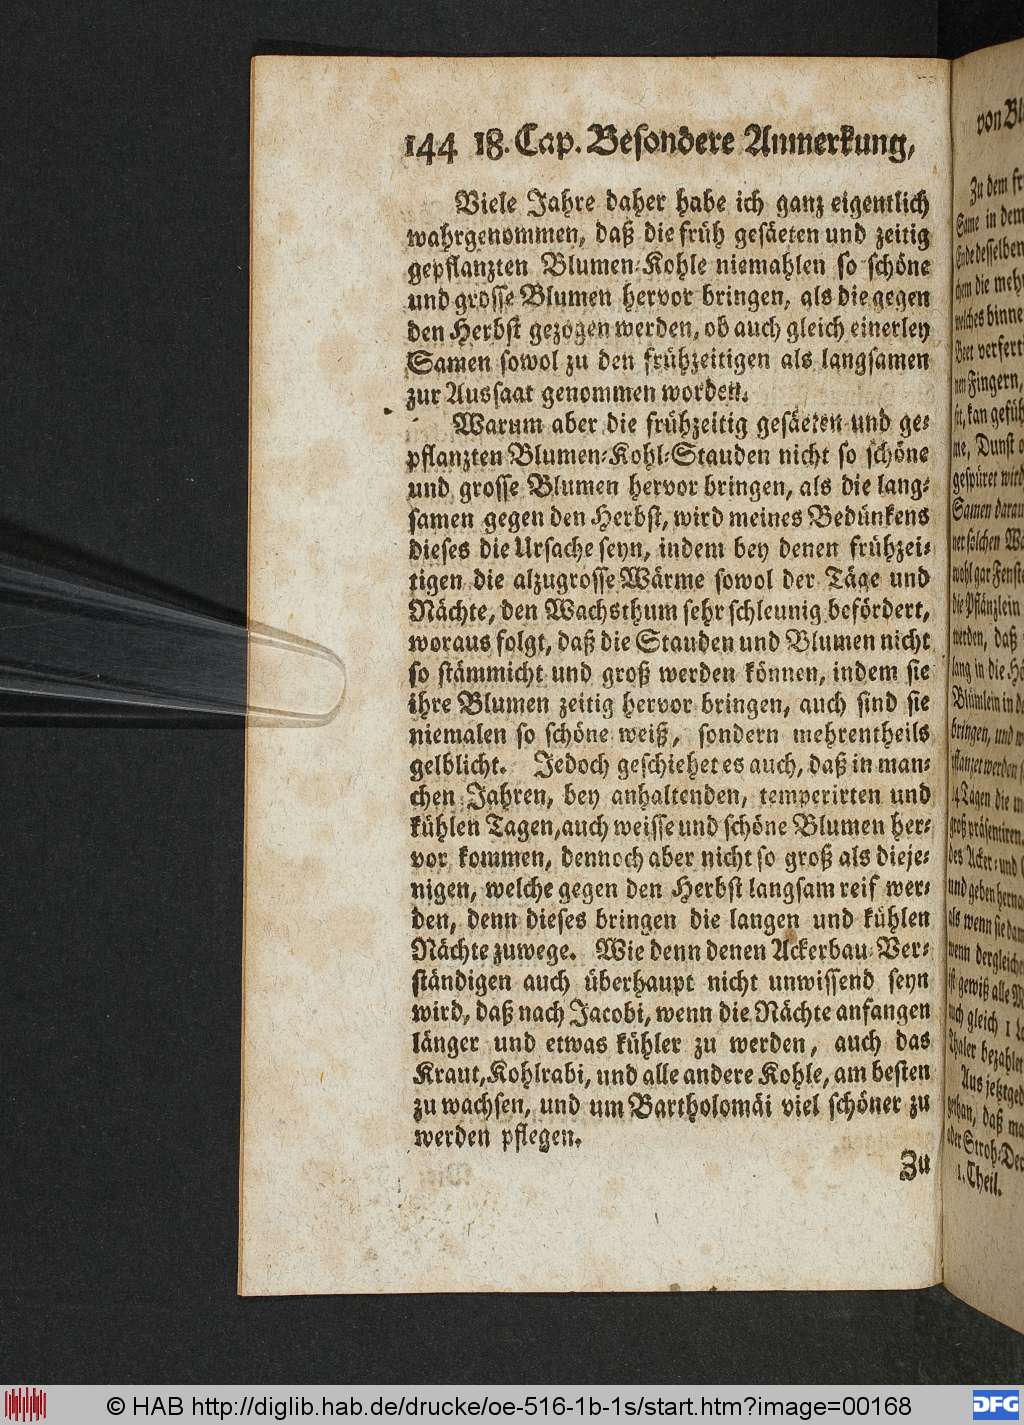 144 18. Cap. Besondere Anmerkung,
Viele Jahre daher habe ich ganz eigentlich
wahrgenommen, daß die früh gesäeten und zeitig
gepflanzten Blumen-Kohle niemahlen so schöne
und grosse Blumen hervor bringen, als die gegen
den Herbst gezogen werden, ob auch gleich einerley
Samen sowol zu den frühzeitigen als langsamen
zur Aussaat genommen worden.
Warum aber die frühzeitig gesäeten und ge-
pflanzten Blumen-Kohl-Stauden nicht so schöne
und grosse Blumen hervor bringen, als die lang-
samen gegen den Herbst, wird meines Bedünkens
dieses die Ursache seyn, indem bey denen frühzei-
tigen die alzugrosse Wärme sowol der Täge und
Nächte, den Wachsthum sehr schleunig befördert,
woraus folgt, daß die Stauden und Blumen nicht
so stämmicht und groß werden können, indem sie
ihre Blumen zeitig hervor bringen, auch sind sie
niemalen so schöne weiß, sondern mehrentheils
gelblicht. Jedoch geschiehet es auch, daß in man-
chen Jahren, bey anhaltenden, temperirten und
kühlen Tagen, auch weisse und schöne Blumen her-
vor kommen, dennoch aber nicht so groß als dieje-
nigen, welche gegen den Herbst langsam reif wer-
den, denn dieses bringen die langen und kühlen
Nächte zuwege. Wie denn denen Ackerbau-Ver-
ständigen auch überhaupt nicht unwissend seyn
wird, daß nach Jacobi, wenn die Nächte anfangen
länger und etwas kühler zu werden, auch das
Kraut, Kohlrabi, und alle andere Kohle, am besten
zu wachsen, und um Bartholomäi viel schöner zu
werden pflegen.
Zu
von
Zu dem
Same in dem
Ende desselben
die
welches binne
Beet
Fingern,
kan
Dunst
gespüret wird
Samen
solchen
wohl gar
die Pflänzlein
werden, daß
lang in die
Blümlein in
bringen, und
werden
14 Tagen die
groß präsentiren.
des Acker- und
und geben
als wenn sie
wenn
ist gewiß alle
auch gleich 1
Thaler
Aus
daß
oder Stroh-
1. Theil.
© HAB http://diglib.hab.de/drucke/oe-516-1b-1s/start.htm?image=00168
DFG